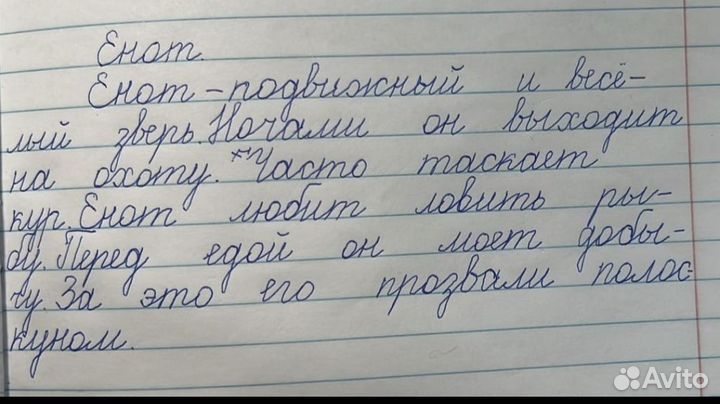 Енот.
Енот - подвижный и весё-
лый зверь. Ночами он выходит
на охоту. Часто таскает
кур. Енот любит ловить ры-
бу. Перед едой он моет добы-
чу. За это его прозвали полос-
куном.
Avito